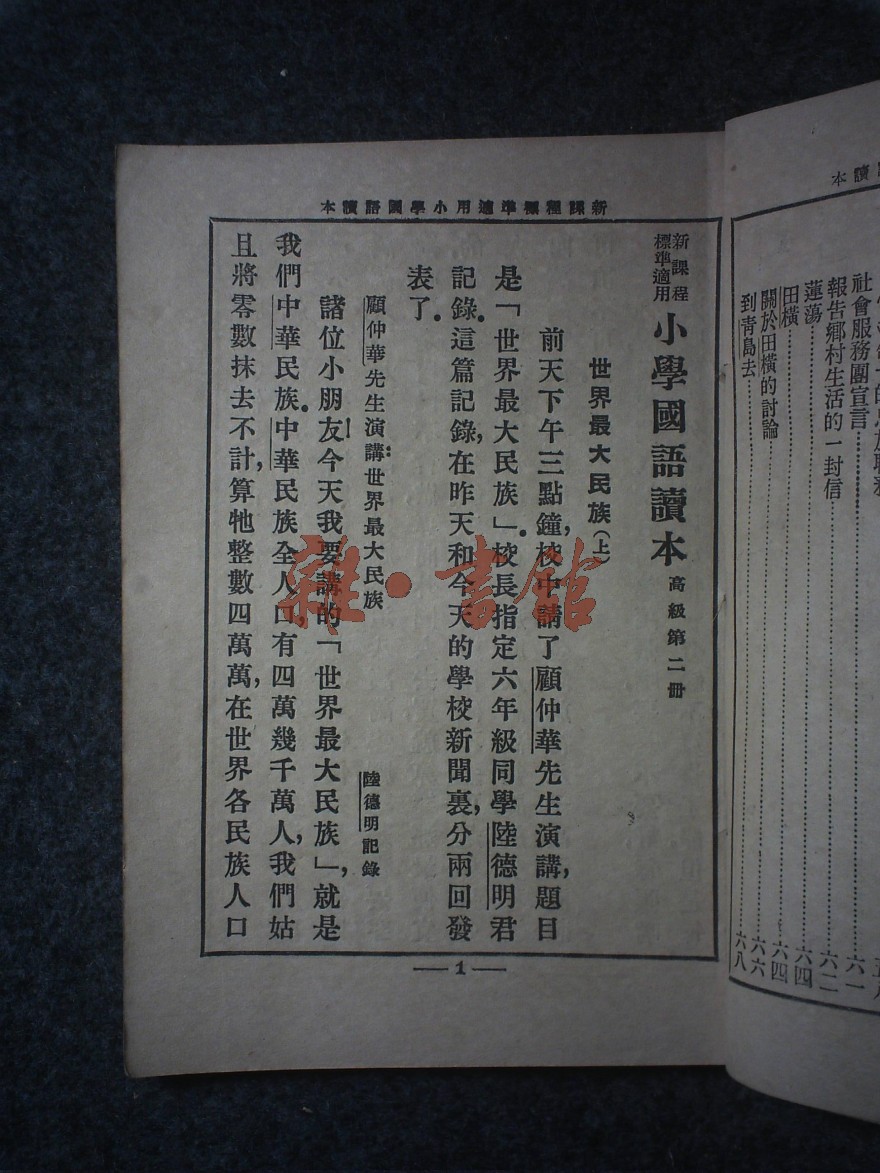 本讀語國學小用適準標程課新
新課程
標準適用
小學國語讀本 高級第二冊
世界最大民族(上)
前天下午三點鐘,校中請了顧仲華先生演講,題目
是「世界最大民族」。校長指定六年級同學陸德明君
記錄。這篇記錄,在昨天和今天的學校新聞裏,分兩回發
表了。
顧仲華先生演講:世界最大民族 陸德明記錄
諸位小朋友!今天我要講的「世界最大民族」,就是
我們中華民族。中華民族全人口,有四萬幾千萬人,我們姑
且將零數抹去不計,算牠整數四萬萬,在世界各民族人口
—1—
讀本
社會服務團宣言 六一
報告鄉村生活的一封信 六二
蓮蕩 六四
田橫 六四
關於田橫的討論 六六
到青島去 六八
雜·書館